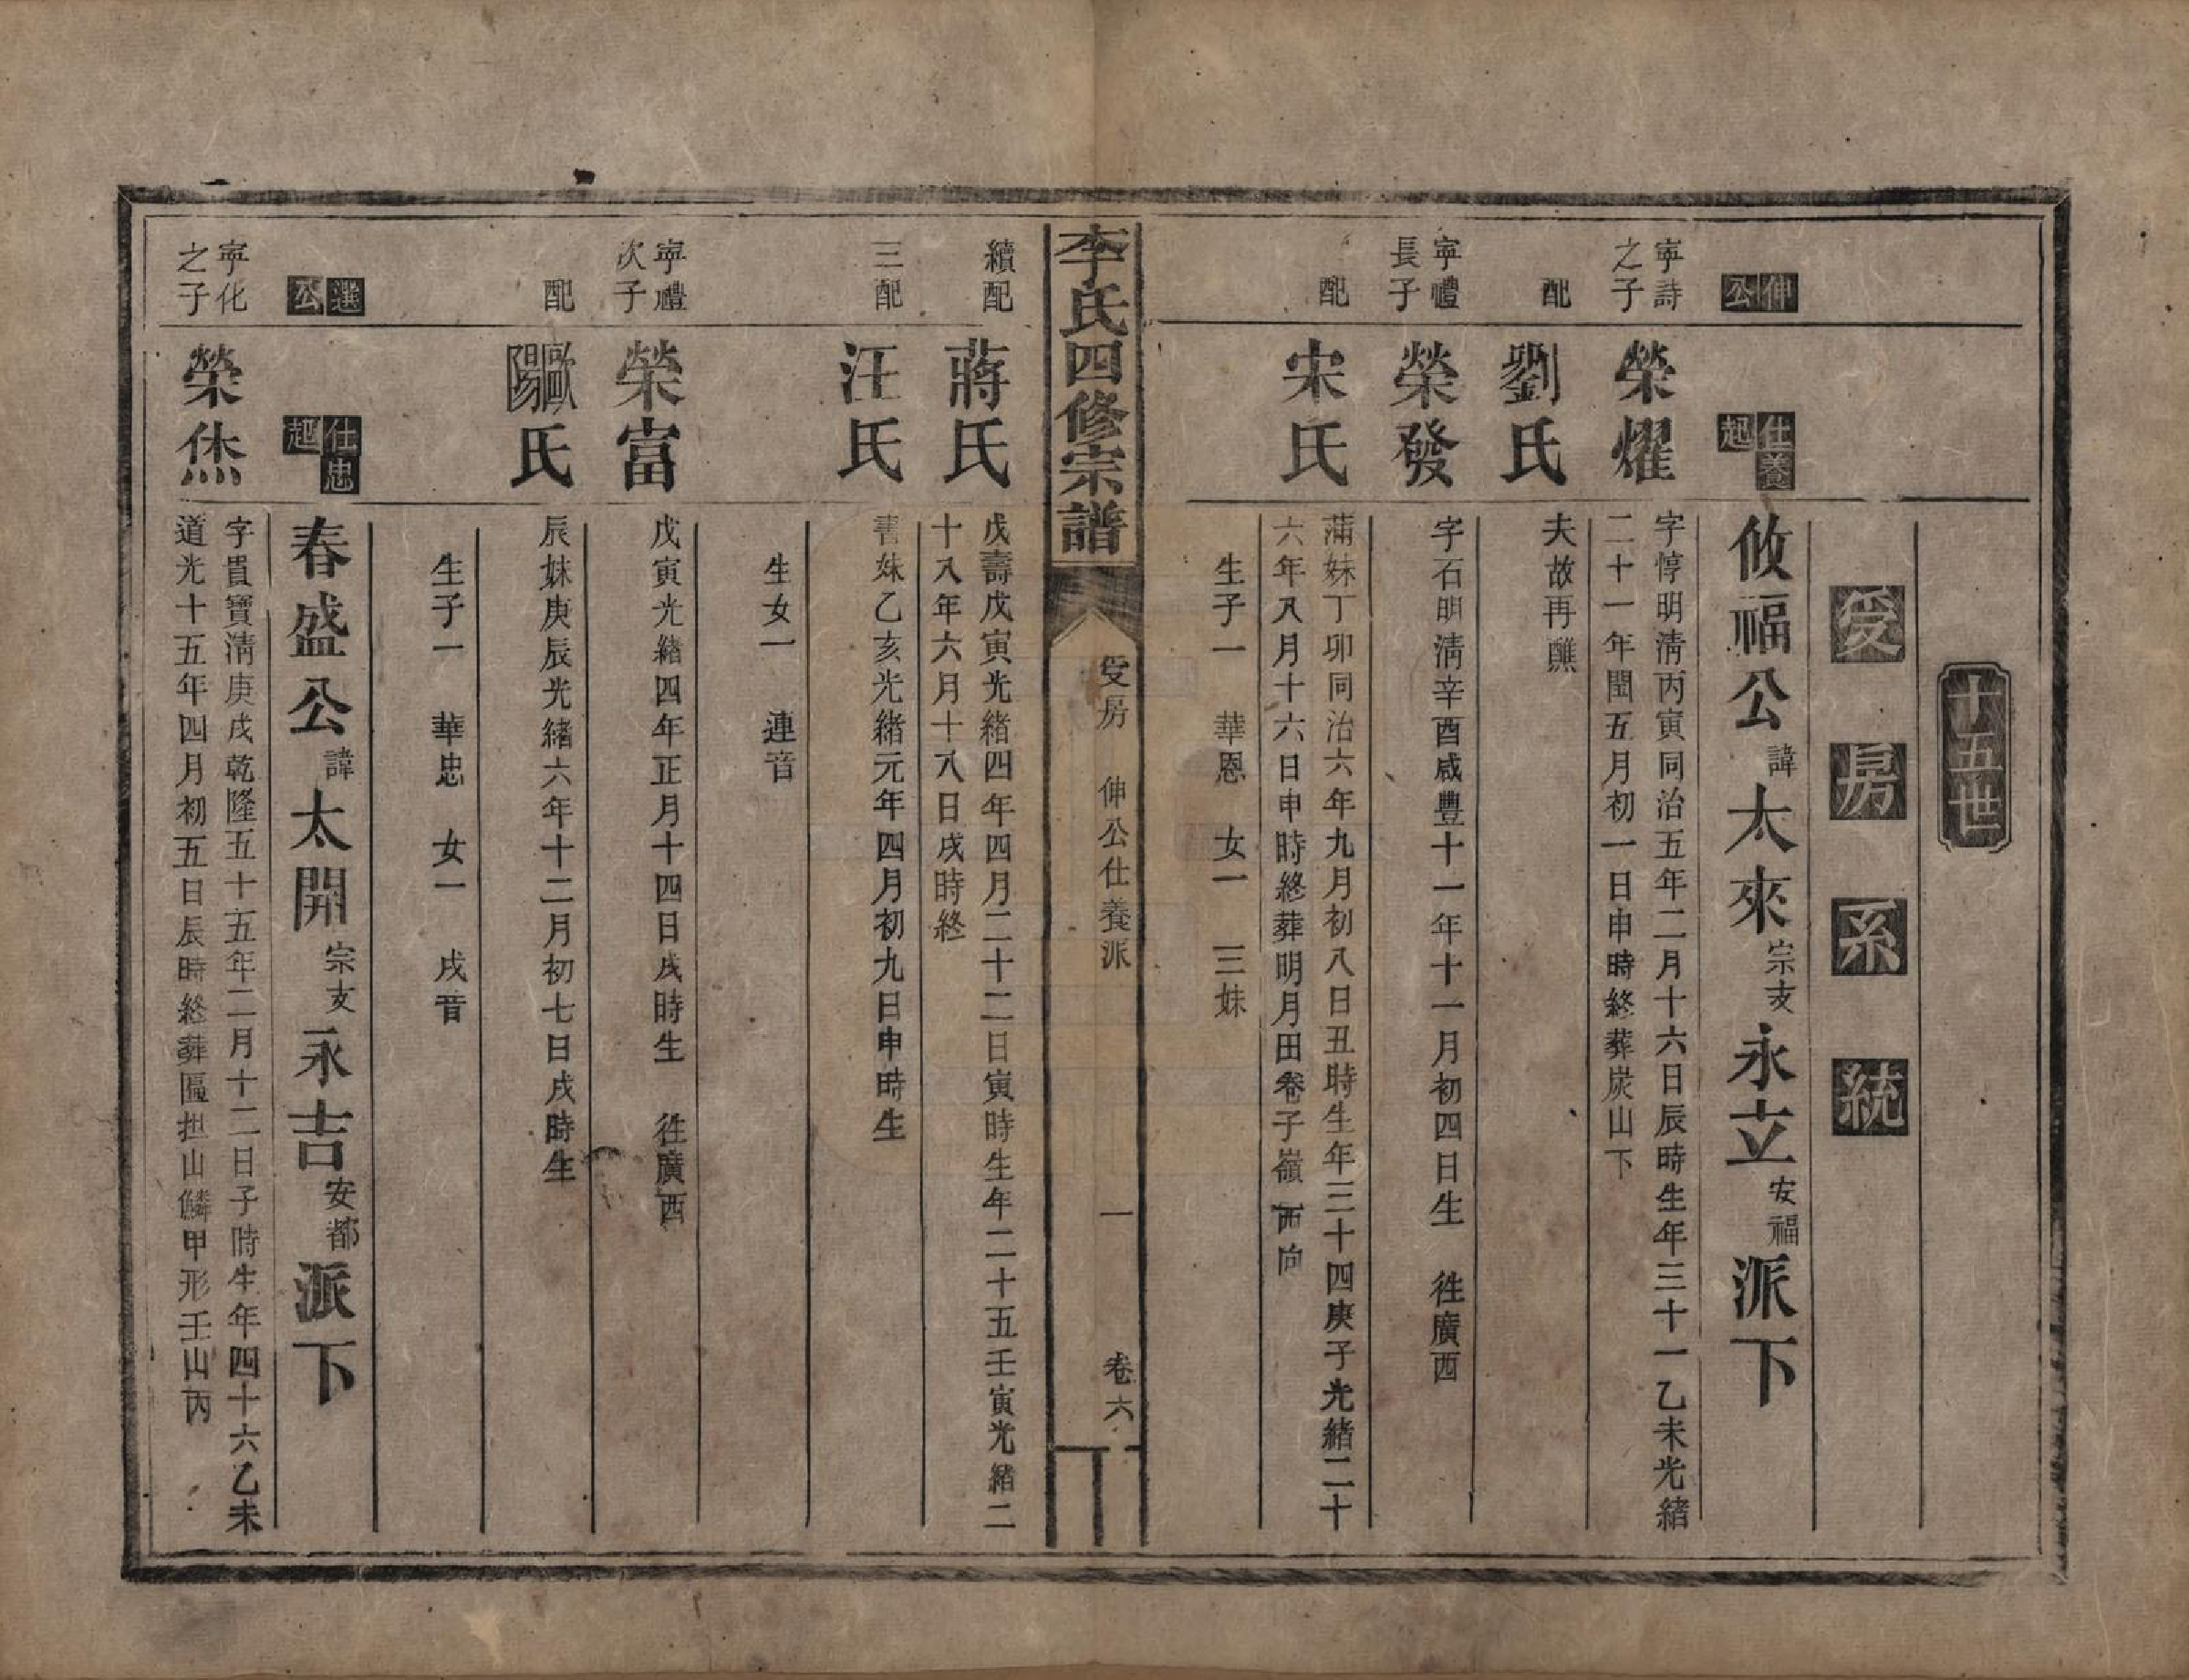 十五世
受房系統
伸公
仕養起
攸福公諱太來宗支永立安福派下
寧詩之子
榮燿
字惇明清丙寅同治五年二月十六日辰時生年三十一乙未光緒
二十一年閏五月初一日申時終葬炭山下
配
劉氏
夫故再醮
寧禮長子
榮發
字石明清辛酉咸豐十一年十一月初四日生 徃廣西
配
宋氏
蒲妹丁卯同治六年九月初八日丑時生年三十四庚子光緒二十
六年八月十六日申時終葬明月田卷子嶺西向
生子一 華恩 女一 三妹
李氏四修宗譜
受房 伸公仕養派
一
卷六
續配
蔣氏
戊壽戊寅光緒四年四月二十二日寅時生年二十五壬寅光緒二
十八年六月十八日戌時終
三配
汪氏
書妹乙亥光緒元年四月初九日申時生
生女一 連音
寧禮次子
榮富
戊寅光緒四年正月十四日戌時生 徃廣西
配
歐陽氏
辰妹庚辰光緒六年十二月初七日戌時生
生子一 華忠 女一 戌音
選公
仕忠起
春盛公諱太開宗支永吉安都派下
寧化之子
榮烋
字貴寶清庚戌乾隆五十五年二月十二日子時生年四十六乙未
道光十五年四月初五日辰時終葬區担山鱗甲形壬山丙